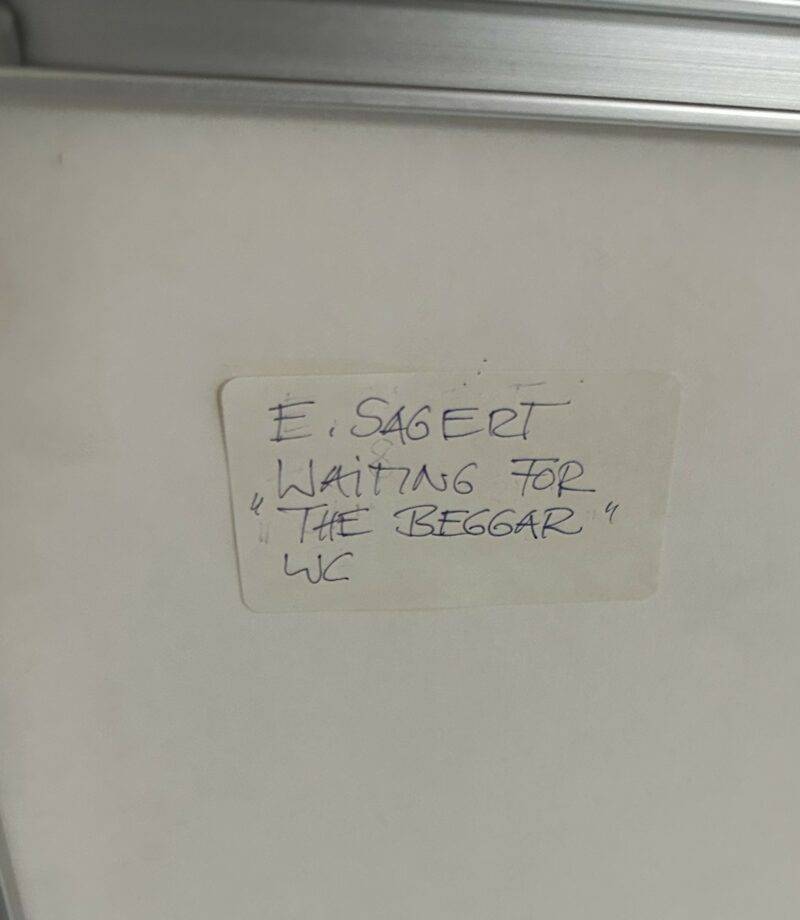 E. SAGERT
WAITING FOR
" THE BEGGAR "
WC